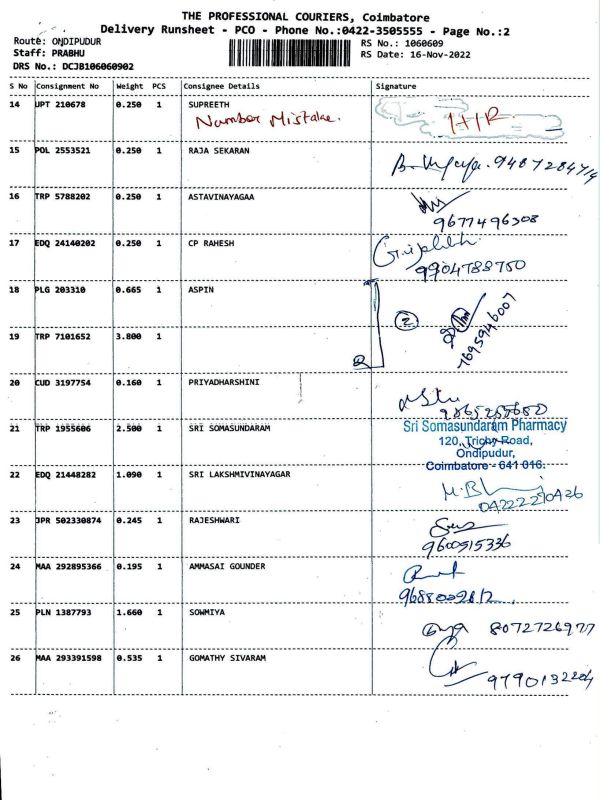 THE PROFESSIONAL COURIERS, Coimbatore
Delivery Runsheet - PCO - Phone No.:0422-3505555 - Page No.:2
Route: ONDIPUDUR
RS No.: 1060609
Staff: PRABHU
RS Date: 16-Nov-2022
DRS No.: DCJB106060902
S No Consignment No Weight PCS Consignee Details Signature
14 UPT 210678 0.250 1 SUPREETH
Number Mistake.
15 POL 2553521 0.250 1 RAJA SEKARAN
9487284714
16 TRP 5788202 0.250 1 ASTAVINAYAGAA
9677496308
17 EDQ 24140202 0.250 1 CP RAHESH
9904788750
18 PLG 203310 0.665 1 ASPIN
2
7695946007
19 TRP 7101652 3.800 1
20 CUD 3197754 0.160 1 PRIYADHARSHINI
21 TRP 1955606 2.500 1 SRI SOMASUNDARAM
Sri Somasundaram Pharmacy
120, Trichy Road,
Ondipudur,
Coimbatore - 641 016.
22 EDQ 21448282 1.090 1 SRI LAKSHMIVINAYAGAR
04222270426
23 JPR 502330874 0.245 1 RAJESHWARI
9600515336
24 MAA 292895366 0.195 1 AMMASAI GOUNDER
25 PLN 1387793 1.660 1 SOWMIYA
8072726977
26 MAA 293391598 0.535 1 GOMATHY SIVARAM
9790132204